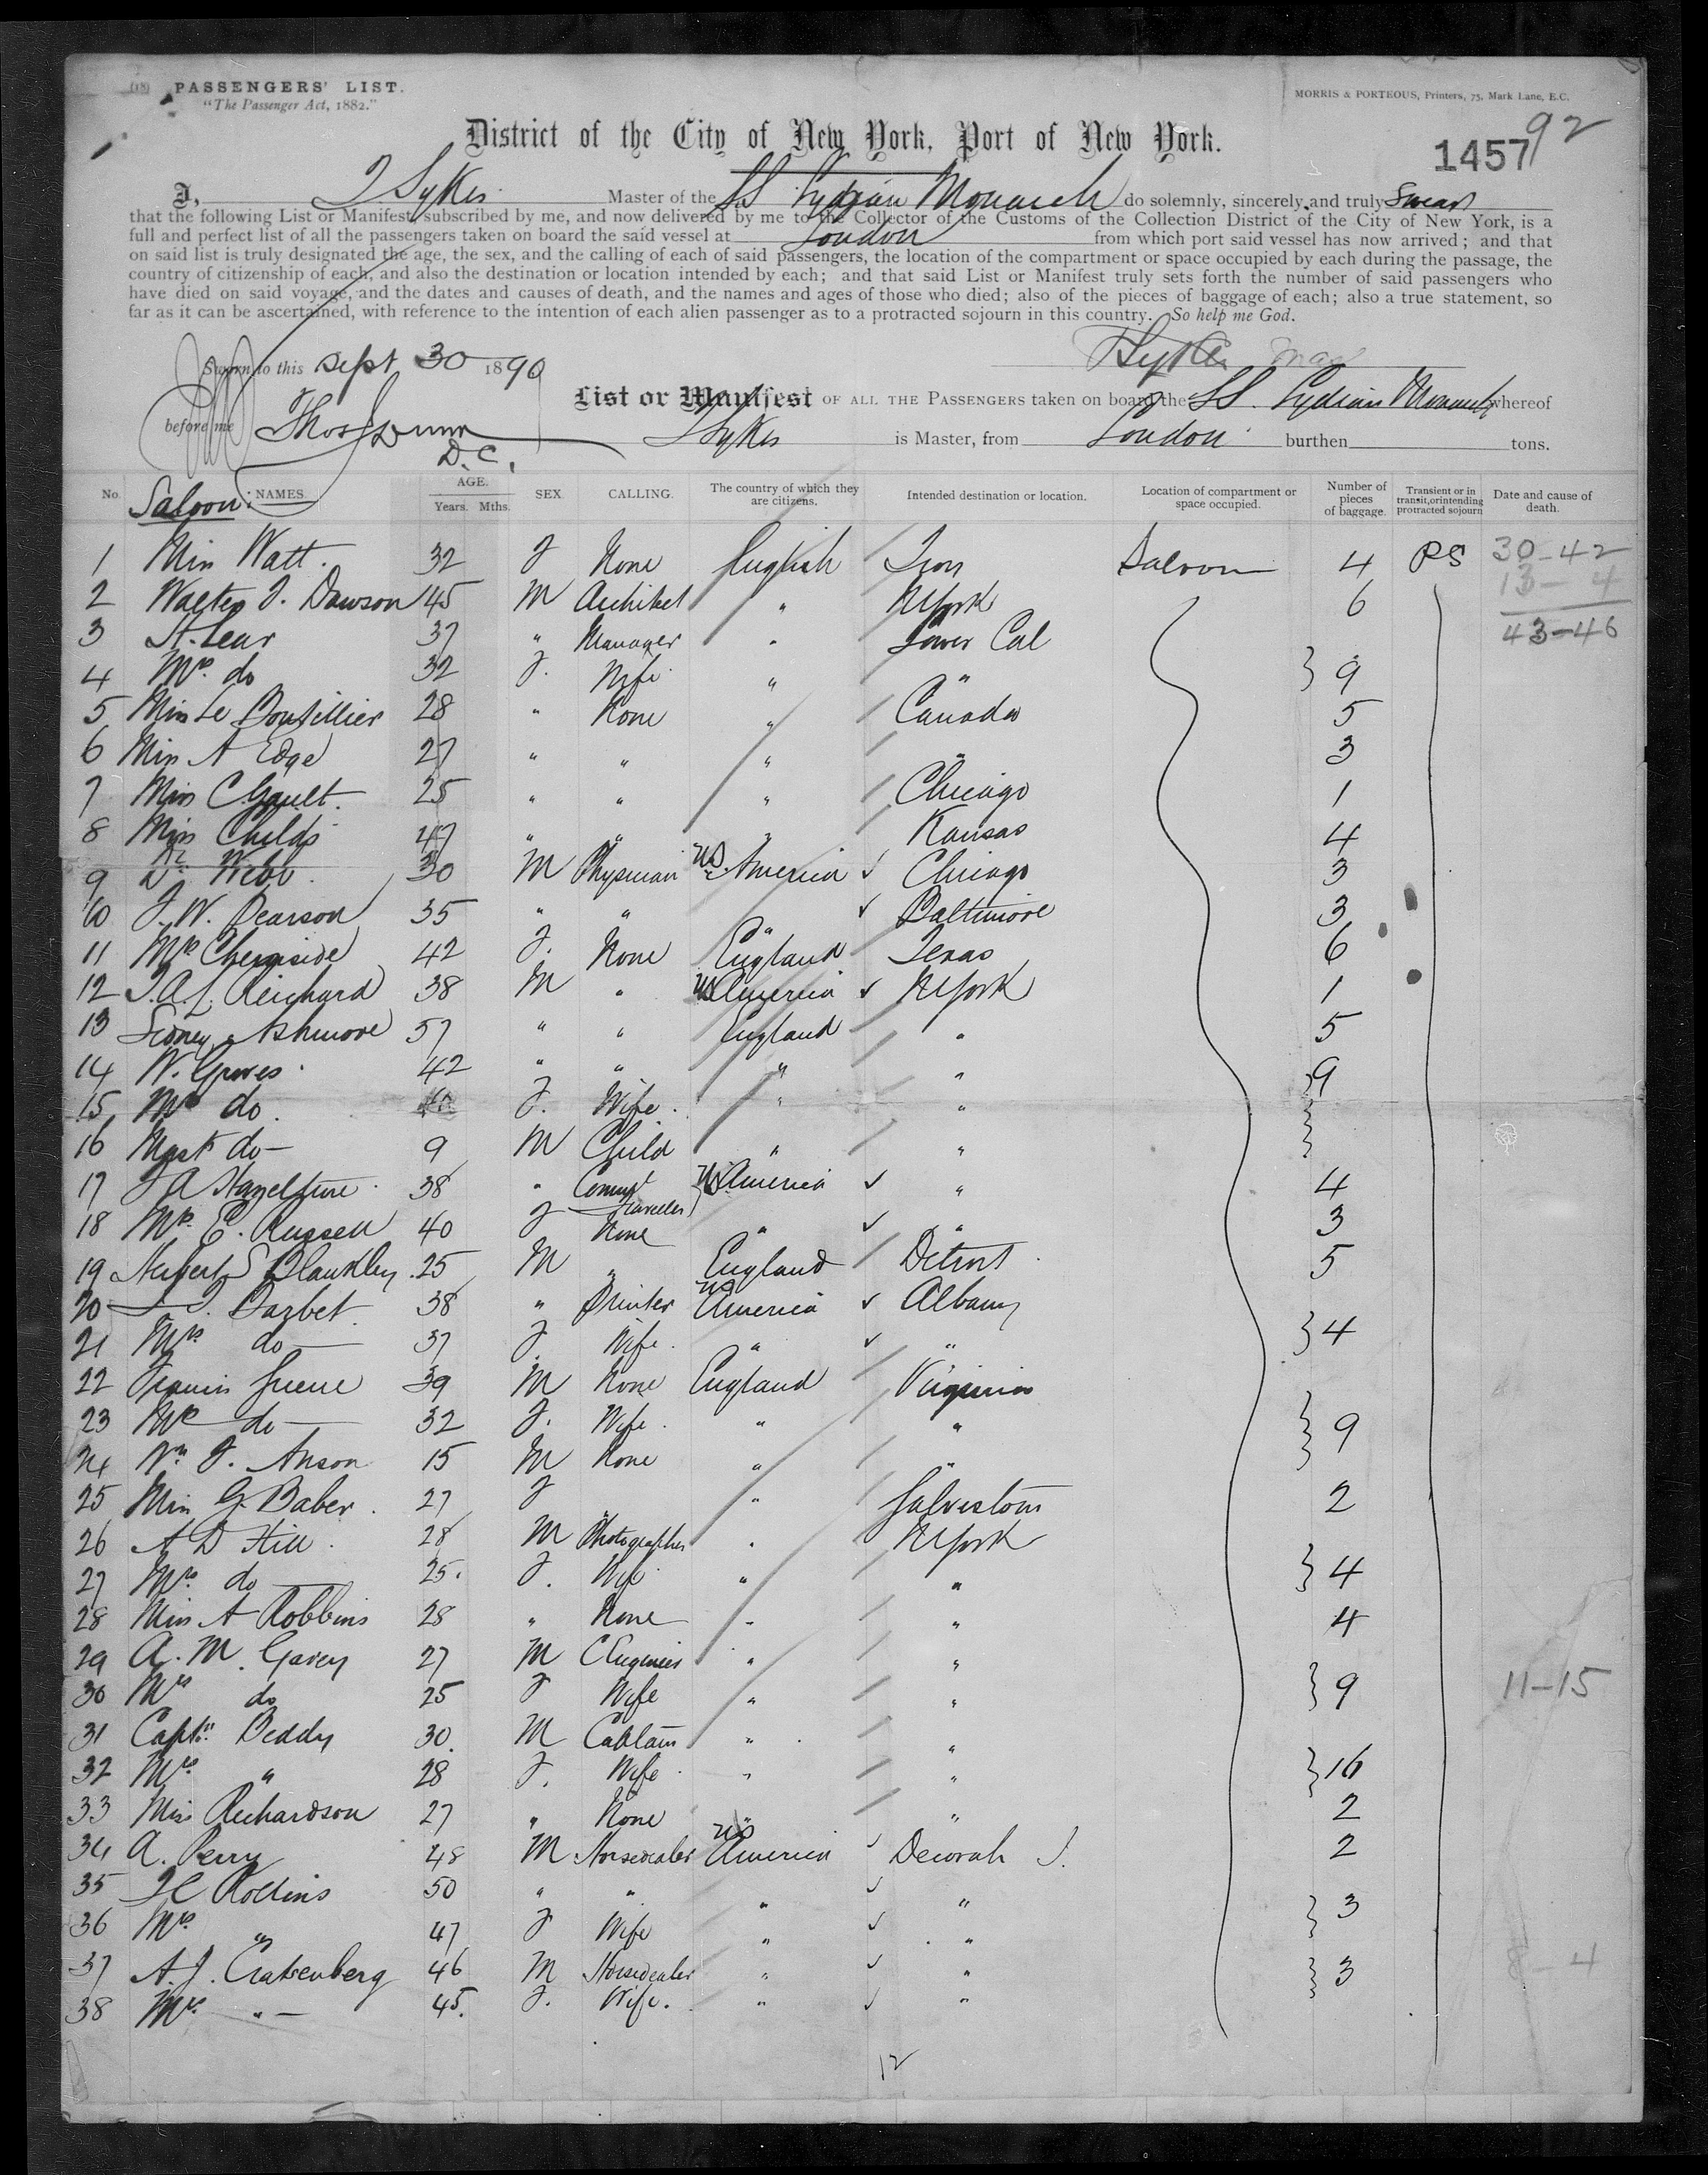 (18) PASSENGERS' LIST.
"The Passenger Act, 1882."
MORRIS & PORTEOUS, Printers, 75, Mark Lane, E.C.
District of the City of New York, Port of New York.
1457 92
I, J Sykes Master of the SS Lydian Monarch do solemnly, sincerely and truly Swear
that the following List or Manifest, subscribed by me, and now delivered by me to the Collector of the Customs of the Collection District of the City of New York, is a
full and perfect list of all the passengers taken on board the said vessel at London from which port said vessel has now arrived; and that
on said list is truly designated the age, the sex, and the calling of each of said passengers, the location of the compartment or space occupied by each during the passage, the
country of citizenship of each, and also the destination or location intended by each; and that said List or Manifest truly sets forth the number of said passengers who
have died on said voyage, and the dates and causes of death, and the names and ages of those who died; also of the pieces of baggage of each; also a true statement, so
far as it can be ascertained, with reference to the intention of each alien passenger as to a protracted sojourn in this country. So help me God.
Sworn to this Sept 30 1890
List or Manifest OF ALL THE PASSENGERS taken on board the SS. Lydian Monarch whereof
before me Thos Dunn J Sykes is Master, from London burthen tons.
D.C.
No. NAMES. AGE. Years. Mths. SEX. CALLING. The country of which they are citizens. Intended destination or location. Location of compartment or space occupied. Number of pieces of baggage. Transient or in transit, or intending protracted sojourn Date and cause of death.
Saloon.
1 Miss Watt. 32 F None English Saloon 4 PS 30-42
2 Walter J. Dawson 45 M Architect " N York 6 13-4
3 St. Lear 37 " Manager " Lower Cal 43-46
4 Mrs. do 32 F. Wife " " } 9
5 Miss Le Boutillier 28 " None " Canada 5
6 Miss A Edge 27 " " " " 3
7 Miss C Gault. 25 " " " Chicago 1
8 Miss Childs 47 " " " Kansas 4
9 Dr. Webb. 30 M Physician US America Chicago 3
10 J. W. Pearson 35 " " " Baltimore 3
11 Mrs Chermside 42 F. None England Texas 6
12 J.A.L. Reichard 38 M " US America N York 1
13 Sidney Ashmore 57 " " England " 5
14 W. Groves 42 " " " " } 9
15 Mrs do. F. Wife. " " }
16 Mast do 9 M Child " " }
17 J A Hazelture 38 " Comml Traveller US America " 4
18 Mrs. E. Russell 40 F None " " 3
19 Herbert S Blankley 25 M " England Detroit 5
20 Dazbet 38 " Printer US America Albany
21 Mrs do 37 F. Wife. " " } 4
22 Francis Greene 39 M None England Virginia
23 Mrs do 32 F. Wife. " " } 9
24 Wm J. Anson 15 M None " "
25 Miss G. Baber. 27 F " " Galvestown 2
26 A D Hill. 28 M Photographer " N York
27 Mrs. do 25. F. Wife " " } 4
28 Miss A Robbins 28 " None " " 4
29 A. M. Garey 27 M C Engineer " "
30 Mrs do 25 F Wife " " } 9 11-15
31 Captn. Beddy 30. M Captain " "
32 Mrs. " 28 F. Wife " " } 16
33 Miss Richardson 27 " None " " 2
34 A. Perry 48 M Horsedealer US America Decorah I. 2
35 Rollins 50 " " " "
36 Mrs. " 47 F Wife " " } 3
37 A.J. Cratsenberg 46 M Horsedealer " " } 3 8-4
38 Mrs. " 45. F. Wife. " "
12